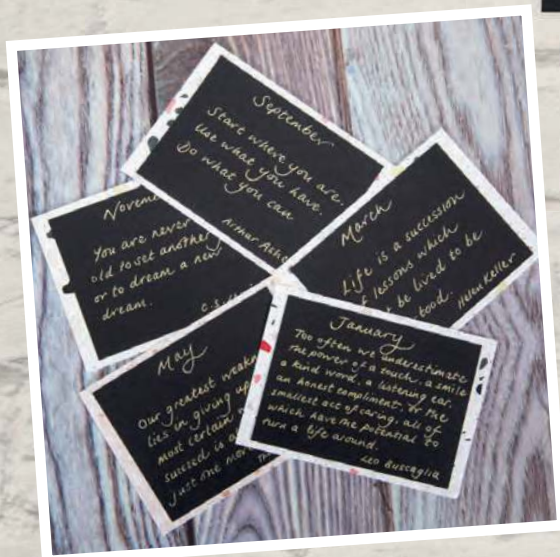 September
Start where you are.
Use what you have.
Do what you can
Arthur Ashe
Novem
You are never
old to set another
or to dream a new
dream.
C.S.
March
Life is a succession
f lessons which
t be lived to be
tood. Helen Keller
May
Our greatest weakn
lies in giving up
most certain
succeed is a
just one mor
Th
January
Too often we underestimate
the power of a touch, a smile
a kind word, a listening ear
an honest compliment, or the
smallest act of caring, all of
which have the potential to
turn a life around.
Leo Buscaglia